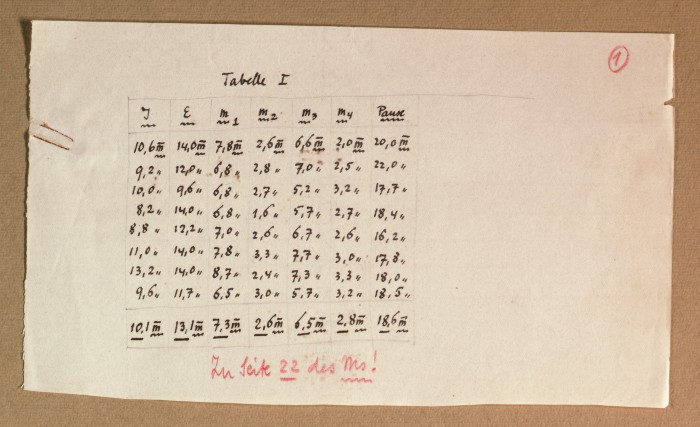 1
Tabelle I
J E m1 m2 m3 m4 Pause
10,6m̅ 14,0m̅ 7,8m̅ 2,6m̅ 6,6m̅ 2,0m̅ 20,0m̅
9,2〃 12,0〃 6,8〃 2,8〃 7,0〃 2,5〃 22,0〃
10,0〃 9,6〃 6,8〃 2,7〃 5,2〃 3,2〃 17,7〃
8,2〃 14,0〃 6,8〃 1,6〃 5,7〃 2,7〃 18,4〃
8,8〃 12,2〃 7,0〃 2,6〃 6,7〃 2,6〃 16,2〃
11,0〃 14,0〃 7,8〃 3,3〃 7,7〃 3,0〃 17,8〃
13,2〃 14,0〃 8,7〃 2,4〃 7,3〃 3,3〃 18,0〃
9,6〃 11,7〃 6,5〃 3,0〃 5,7〃 3,2〃 18,5〃
10,1m̅ 13,1m̅ 7,3m̅ 2,6m̅ 6,5m̅ 2,8m̅ 18,6m̅
Zu Seite 22 des Ms!